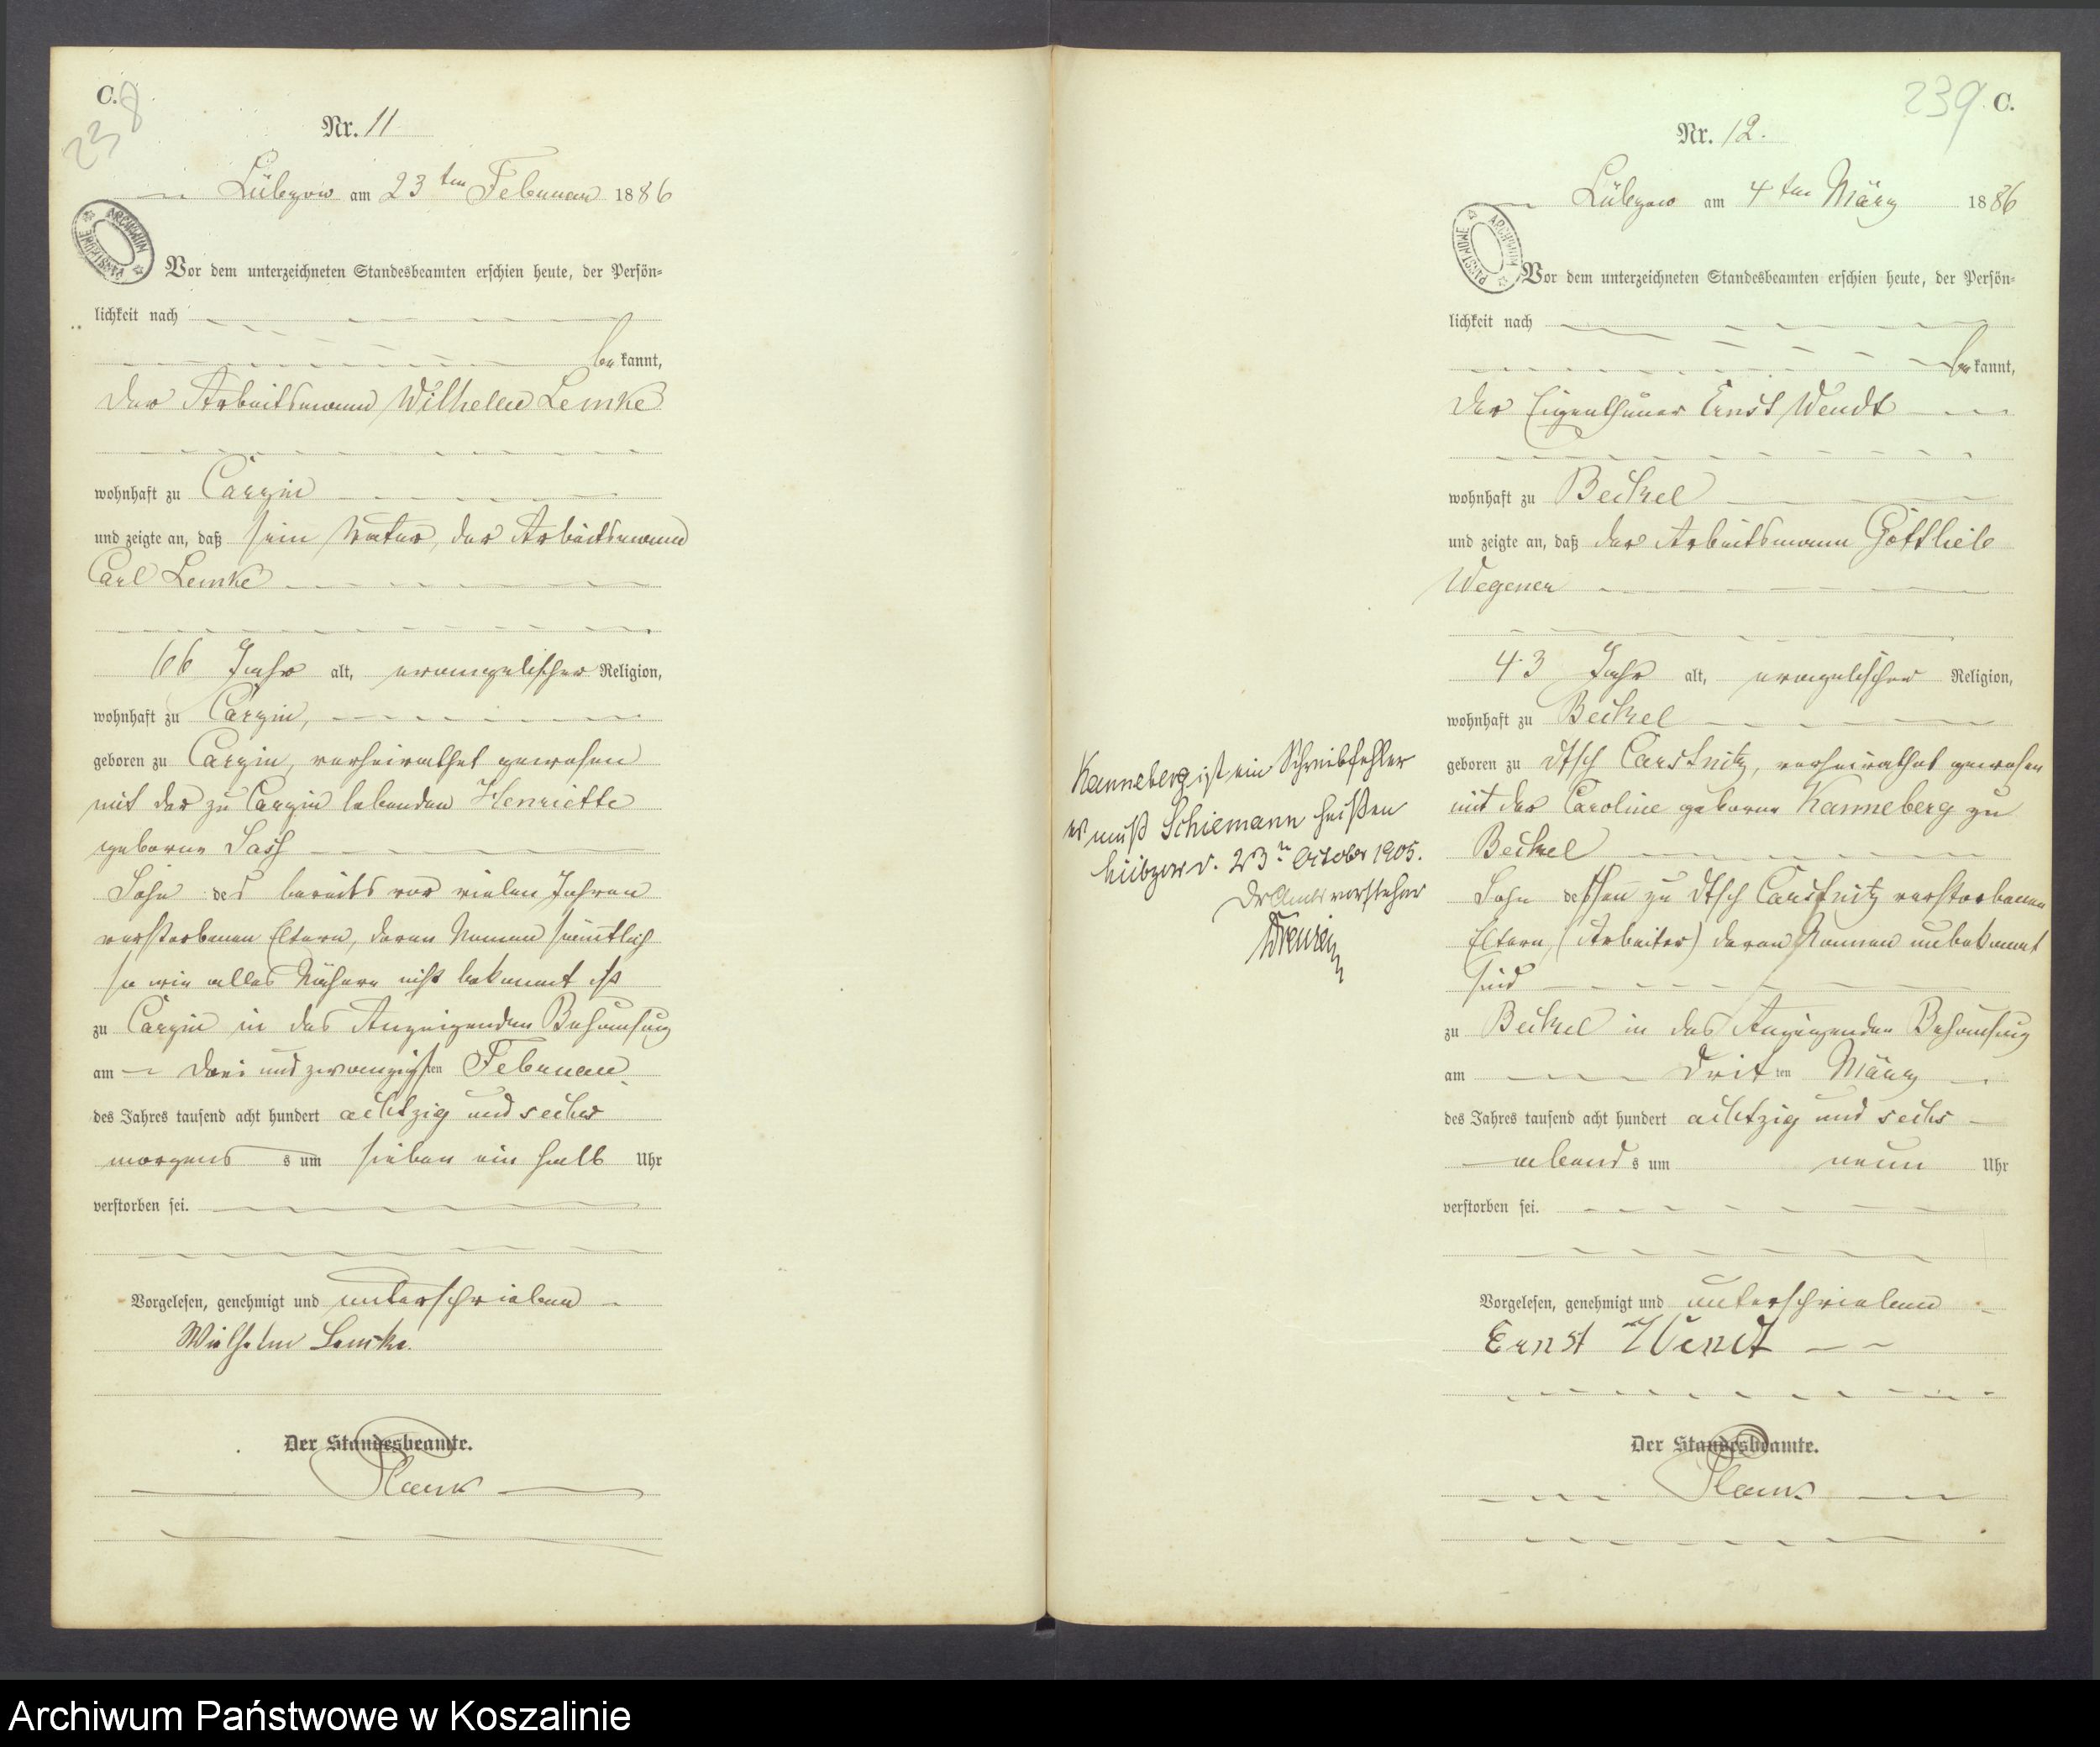 C.
238
Nr. 11
Lübzow am 23ten Februar 1886
ARCHIWUM PAŃSTWOWE
Vor dem unterzeichneten Standesbeamten erschien heute, der Persön-
lichkeit nach
bekannt,
der Arbeitsmann Wilhelm Lemke
wohnhaft zu Carzin
und zeigte an, daß sein Vater, der Arbeitsmann
Carl Lemke
66 Jahr alt, evangelischer Religion,
wohnhaft zu Carzin,
geboren zu Carzin, verheirathet gewesen
mit der zu Carzin lebenden Henriette
geborne Sass
Sohn des bereits vor vielen Jahren
verstorbenen Eltern, deren Namen sämtlich
so wie alles Nähere nicht bekannt ist
zu Carzin in des Anzeigenden Behausung
am drei und zwanzigsten Februar
des Jahres tausend acht hundert achtzig und sechs
morgens s um sieben ein halb Uhr
verstorben sei.
Vorgelesen, genehmigt und unterschrieben
Wilhelm Lemke.
Der Standesbeamte.
239 C.
Nr. 12.
Lübzow am 4ten März 1886
ARCHIWUM PAŃSTWOWE
Vor dem unterzeichneten Standesbeamten erschien heute, der Persön-
lichkeit nach
bekannt,
der Eigenthümer Ernst Wendt
wohnhaft zu Beckel
und zeigte an, daß der Arbeitsmann Gottlieb
Wegener
43 Jahr alt, evangelischer Religion,
wohnhaft zu Beckel
geboren zu Dtsch Carstnitz, verheirathet gewesen
mit der Caroline geborne Kanneberg zu
Beckel
Sohn dessen zu Dtsch Carstnitz verstorbenen
Eltern, (Arbeiter) deren Namen unbekannt
sind
zu Beckel in des Anzeigenden Behausung
am dritten März
des Jahres tausend acht hundert achtzig und sechs
abends um neun Uhr
verstorben sei.
Vorgelesen, genehmigt und unterschrieben
Ernst Wendt
Der Standesbeamte.
Kanneberg ist ein Schreibfehler
es muß Schiemann heißen
Lübzow d. 23n October 1905.
Der Amtsvorsteher
Archiwum Państwowe w Koszalinie